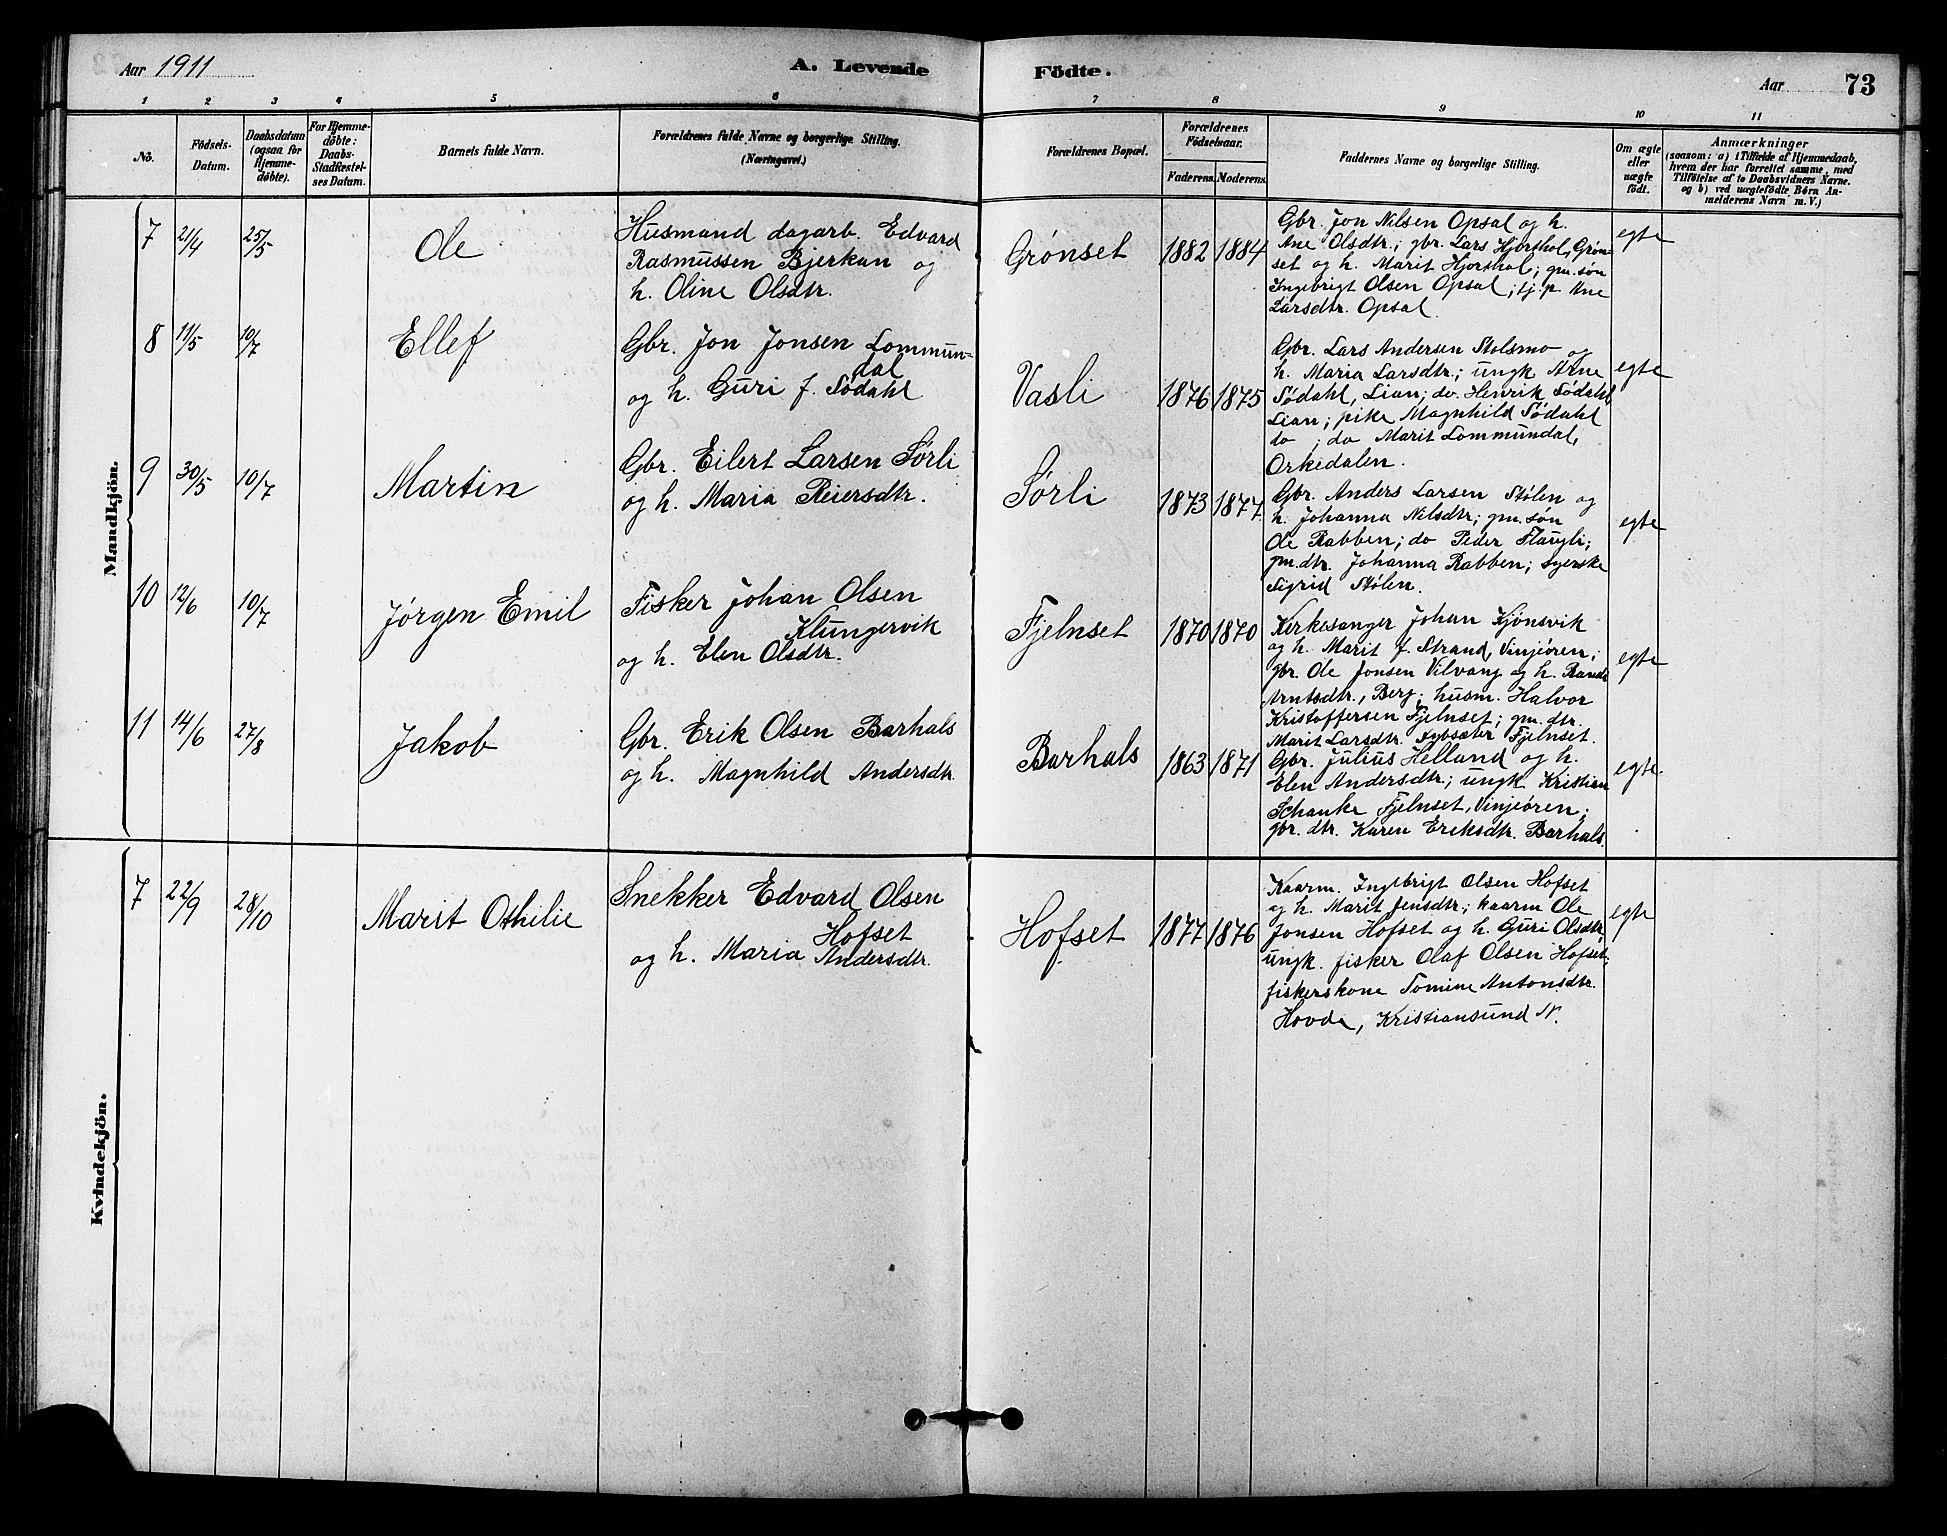 Aar 1911
A. Levende
Födte.
Aar
73
1
2
3
4
5
6
7
8
9
10
11
No.
Födsels-
Datum.
Daabsdatum
(ogsaa for
Hjemme-
døbte).
For Hjemme-
døbte:
Daabs-
Stadfæstel-
ses Datum.
Barnets fulde Navn.
Forældrenes fulde Navne og borgerlige Stilling.
(Næringsvei.)
Forældrenes Bopæl.
Forældrenes
Födselsaar.
Faderens.
Moderens.
Faddernes Navne og borgerlige Stilling.
Om ægte
eller
uægte
födt.
Anmærkninger
(saasom: a) i Tilfælde af Hjemmedaab,
hvem der har forrettet samme, med
Tilføielse af to Daabsvidners Navne.
og b) ved uægtefödte Börn An-
melderens Navn m. V.)
Mandkjön.
7
21/4
25/5
Ole
Husmand dagarb. Edvard
Rasmussen Bjerkan og
h. Oline Olsdtr.
Grønset
1882
1884
Gbr. Jon Nilsen Opsal og h.
Ane Olsdtr.; gbr. Lars Hjorshol, Grøn-
set og h. Marit Hjorshol; gm. søn
Ingebrigt Olsen Opsal; tj.p. Ane
Larsdtr. Opsal
egte
8
11/5
10/7
Ellef
Gbr. Jon Jonsen Lommun-
dal
og h. Guri f. Sødahl
Vasli
1876
1875
Gbr. Lars Andersen Stolsmo og
h. Maria Larsdtr.; ungk Arne
Sødahl, Lian; do. Henrik Sødahl
Lian; pike Magnhild Sødahl
do ; do Marit Lommundal,
Orkedalen.
egte
9
30/5
10/7
Martin
Gbr. Eilert Larsen Sørli
og h. Maria Reiersdtr.
Sørli
1873
1877
Gbr. Anders Larsen Stølen og
h. Johanna Nilsdtr; gm. søn
Ole Rabben; do Peder Flaugli;
gm.dtr. Johanna Rabben; syerske
Sigrid Stølen.
egte
10
12/6
10/7
Jørgen Emil
Fisker Johan Olsen
Klungervik
og h. Elen Olsdtr.
Fjelnset
1870
1870
Kirkesanger Johan Kjønsvik
og h. Marit f. Strand, Vinjøren;
gbr. Ole Jonsen Vilvang og h. Randi
Arntsdtr., Berg; husm. Halvor
Kristoffersen Fjelnset; gm. dtr.
Marit Larsdtr. Fjelnset.
egte
11
14/6
27/8
Jakob
Gbr. Erik Olsen Barhals
og h. Magnhild Andersdtr.
Barhals
1863
1871
Gbr. Julius Helland og h.
Elen Andersdtr; ungk Kristian
Schanke Fjelnset, Vinjeøren;
gbr. dtr. Karen Eriksdtr. Barhals.
egte.
Kvindekjön.
7
22/9
28/10
Marit Othilie
Snekker Edvard Olsen
Hofset
og h. Maria Andersdtr.
Hofset
1877
1876
Kaarm. Ingebrigt Olsen Hofset
og h. Marit Jensdtr; kaarm Ole
Jonsen Hofset og h. Guri Olsdtr,
ungk. fisker Olaf Olsen Hofset;
fiskerskone Tomine Antonsdtr.
Hovde, Kristiansund N.
egte